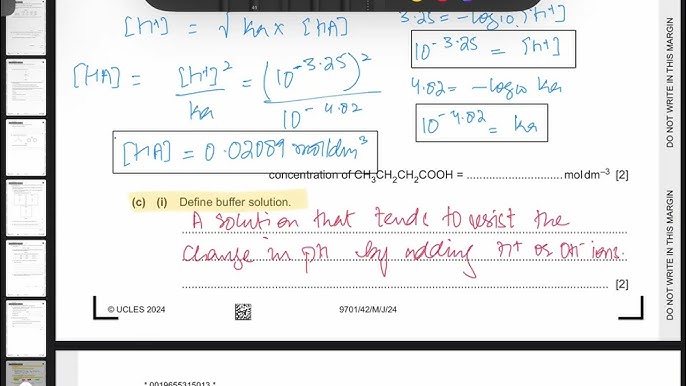 [H+] = √ Ka × [HA]
3.25 = -log10 [H+]
10^-3.25 = [H+]
[HA] = [H+]^2 / Ka = (10^-3.25)^2 / 10^-4.82
4.82 = -log10 Ka
10^-4.82 = Ka
[HA] = 0.02089 mol/dm^3
concentration of CH3CH2CH2COOH = ................................ mol dm–3 [2]
(c) (i) Define buffer solution.
A solution that tends to resist the
change in pH by adding H+ or OH- ions.
[2]
© UCLES 2024
9701/42/M/J/24
DO NOT WRITE IN THIS MARGIN
DO NOT WRITE IN THIS MARGIN
* 0019655315013 *